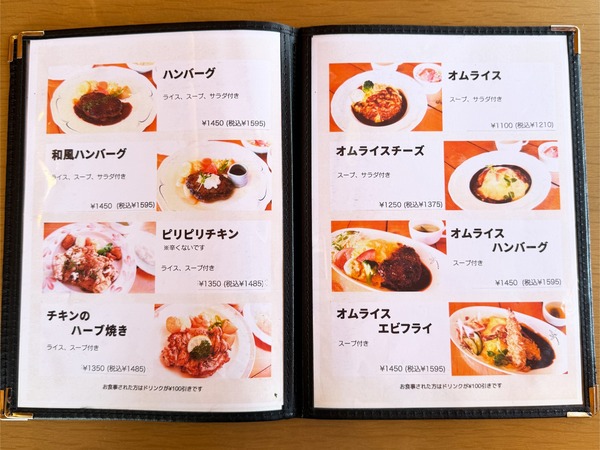 ハンバーグ
ライス、スープ、サラダ付き
¥1450 (税込¥1595)
和風ハンバーグ
ライス、スープ、サラダ付き
¥1450 (税込¥1595)
ピリピリチキン
※辛くないです
ライス、スープ付き
¥1350 (税込¥1485)
チキンの
ハーブ焼き
ライス、スープ付き
¥1350 (税込¥1485)
お食事された方はドリンクが¥100引きです
オムライス
スープ、サラダ付き
¥1100 (税込¥1210)
オムライスチーズ
スープ、サラダ付き
¥1250 (税込¥1375)
オムライス
ハンバーグ
スープ付き
¥1450 (税込¥1595)
オムライス
エビフライ
スープ付き
¥1450 (税込¥1595)
お食事された方はドリンクが¥100引きです